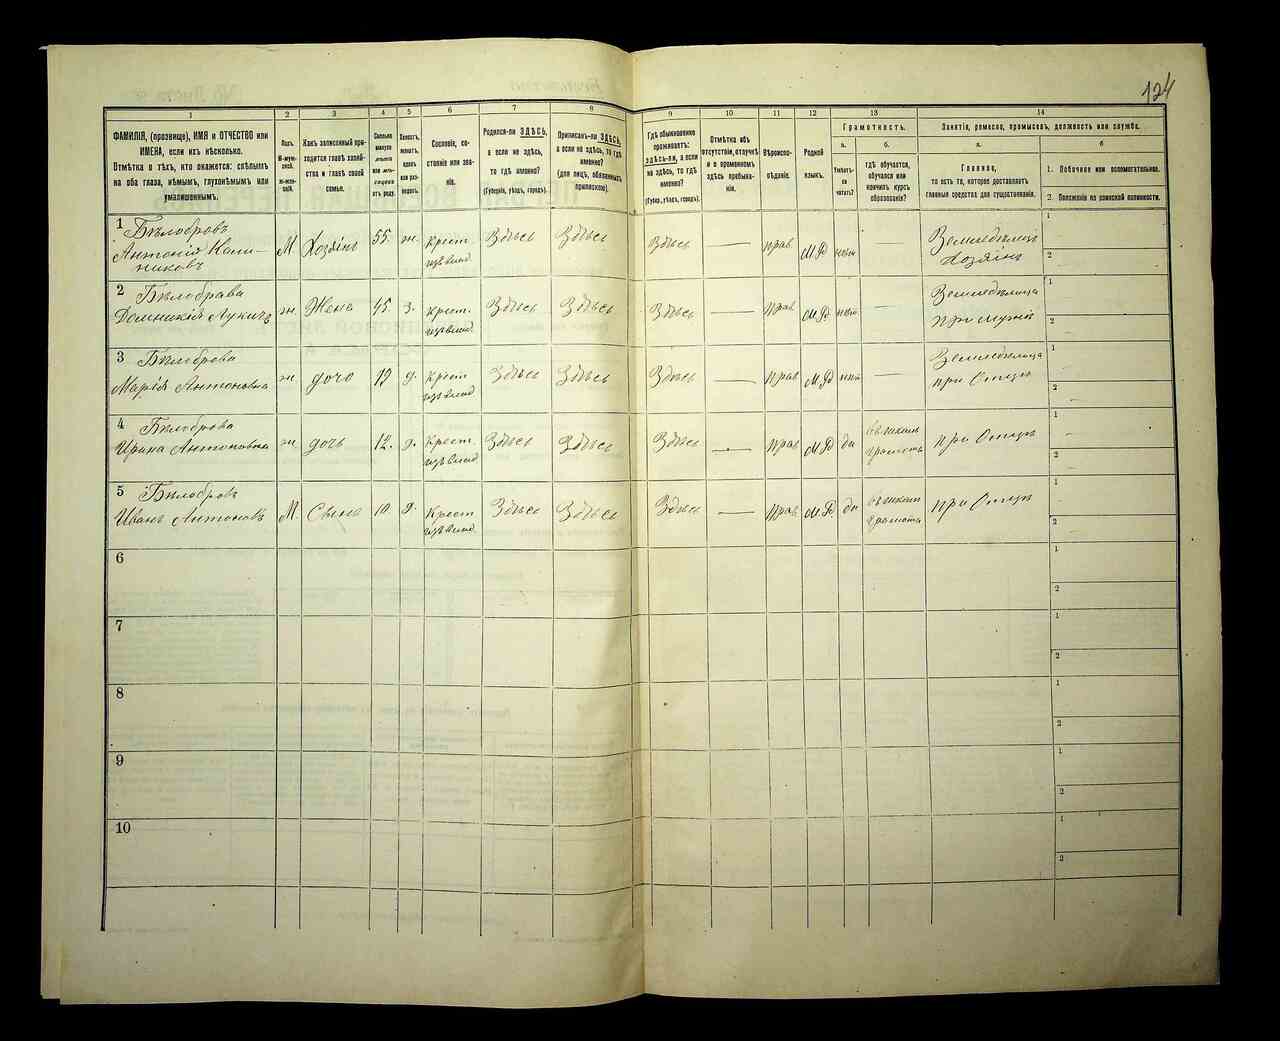 124
1 2 3 4 5 6 7 8 9 10 11 12 13 14
ФАМИЛІЯ, (прозвище), ИМЯ и ОТЧЕСТВО или
ИМЕНА, если ихъ нѣсколько.
Отмѣтка о тѣхъ, кто окажется: слѣпымъ
на оба глаза, нѣмымъ, глухонѣмымъ или
умалишеннымъ.
Полъ.
М-муж-
ской.
Ж-жен-
скій.
Какъ записанный при-
ходится главѣ хозяй-
ства и главѣ своей
семьи.
Сколько
минуло
лѣтъ
или мѣ-
сяцевъ
отъ роду.
Холостъ,
женатъ,
вдовъ
или раз-
веденъ.
Сословіе, со-
стояніе или зва-
ніе.
Родился-ли ЗДѢСЬ,
а если не здѣсь,
то гдѣ именно?
(Губернія, уѣздъ, городъ).
Приписанъ-ли ЗДѢСЬ,
а если не здѣсь, то гдѣ
именно?
(для лицъ, обязанныхъ
припискою).
Гдѣ обыкновенно
проживаетъ:
здѣсь-ли, а если
не здѣсь, то гдѣ
именно?
(Губер., уѣздъ, городъ).
Отмѣтка объ
отсутствіи, отлучкѣ
и о временномъ
здѣсь пребыва-
ніи.
Вѣроиспо-
вѣданіе.
Родной
языкъ.
Грамотность.
а.
Умѣетъ-
ли
читать?
б.
гдѣ обучается,
обучался или
кончилъ курсъ
образованія?
Занятіе, ремесло, промыселъ, должность или служба.
а.
Главное,
то есть то, которое доставляетъ
главныя средства для существованія.
б
1. Побочное или вспомогательное.
2. Положеніе по воинской повинности.
1 Бѣлобровъ
Антоній Кали-
никовъ
М Хозяинъ 55. ж. Крест. Здѣсь Здѣсь Здѣсь — прав М.Р —
Земледѣлецъ
Хозяинъ
1
2
2 Бѣлобрава
Домникія Лукичъ ж. Жена 45. з. Крест. Здѣсь Здѣсь Здѣсь — Прав М.Р —
Земледѣлица
при мужѣ
1
2
3 Бѣлоброва
Марія Антоновна ж дочо 19 д. Крест Здѣсь Здѣсь Здѣсь — Прав М.Р —
Земледѣлица
при Отцѣ
1
2
4 Бѣлоброва
Ирина Антоновна ж дочь 12. д. Крест. Здѣсь Здѣсь Здѣсь — Прав М.Р да
при Отцѣ
1
2
5 Бѣлобровъ
Иванъ Антоновъ М. Сынъ 10. д. Крест Здѣсь Здѣсь Здѣсь — Прав М.Р да
при Отцѣ
1
2
6
1
2
7
1
2
8
1
2
9
1
2
10
1
2